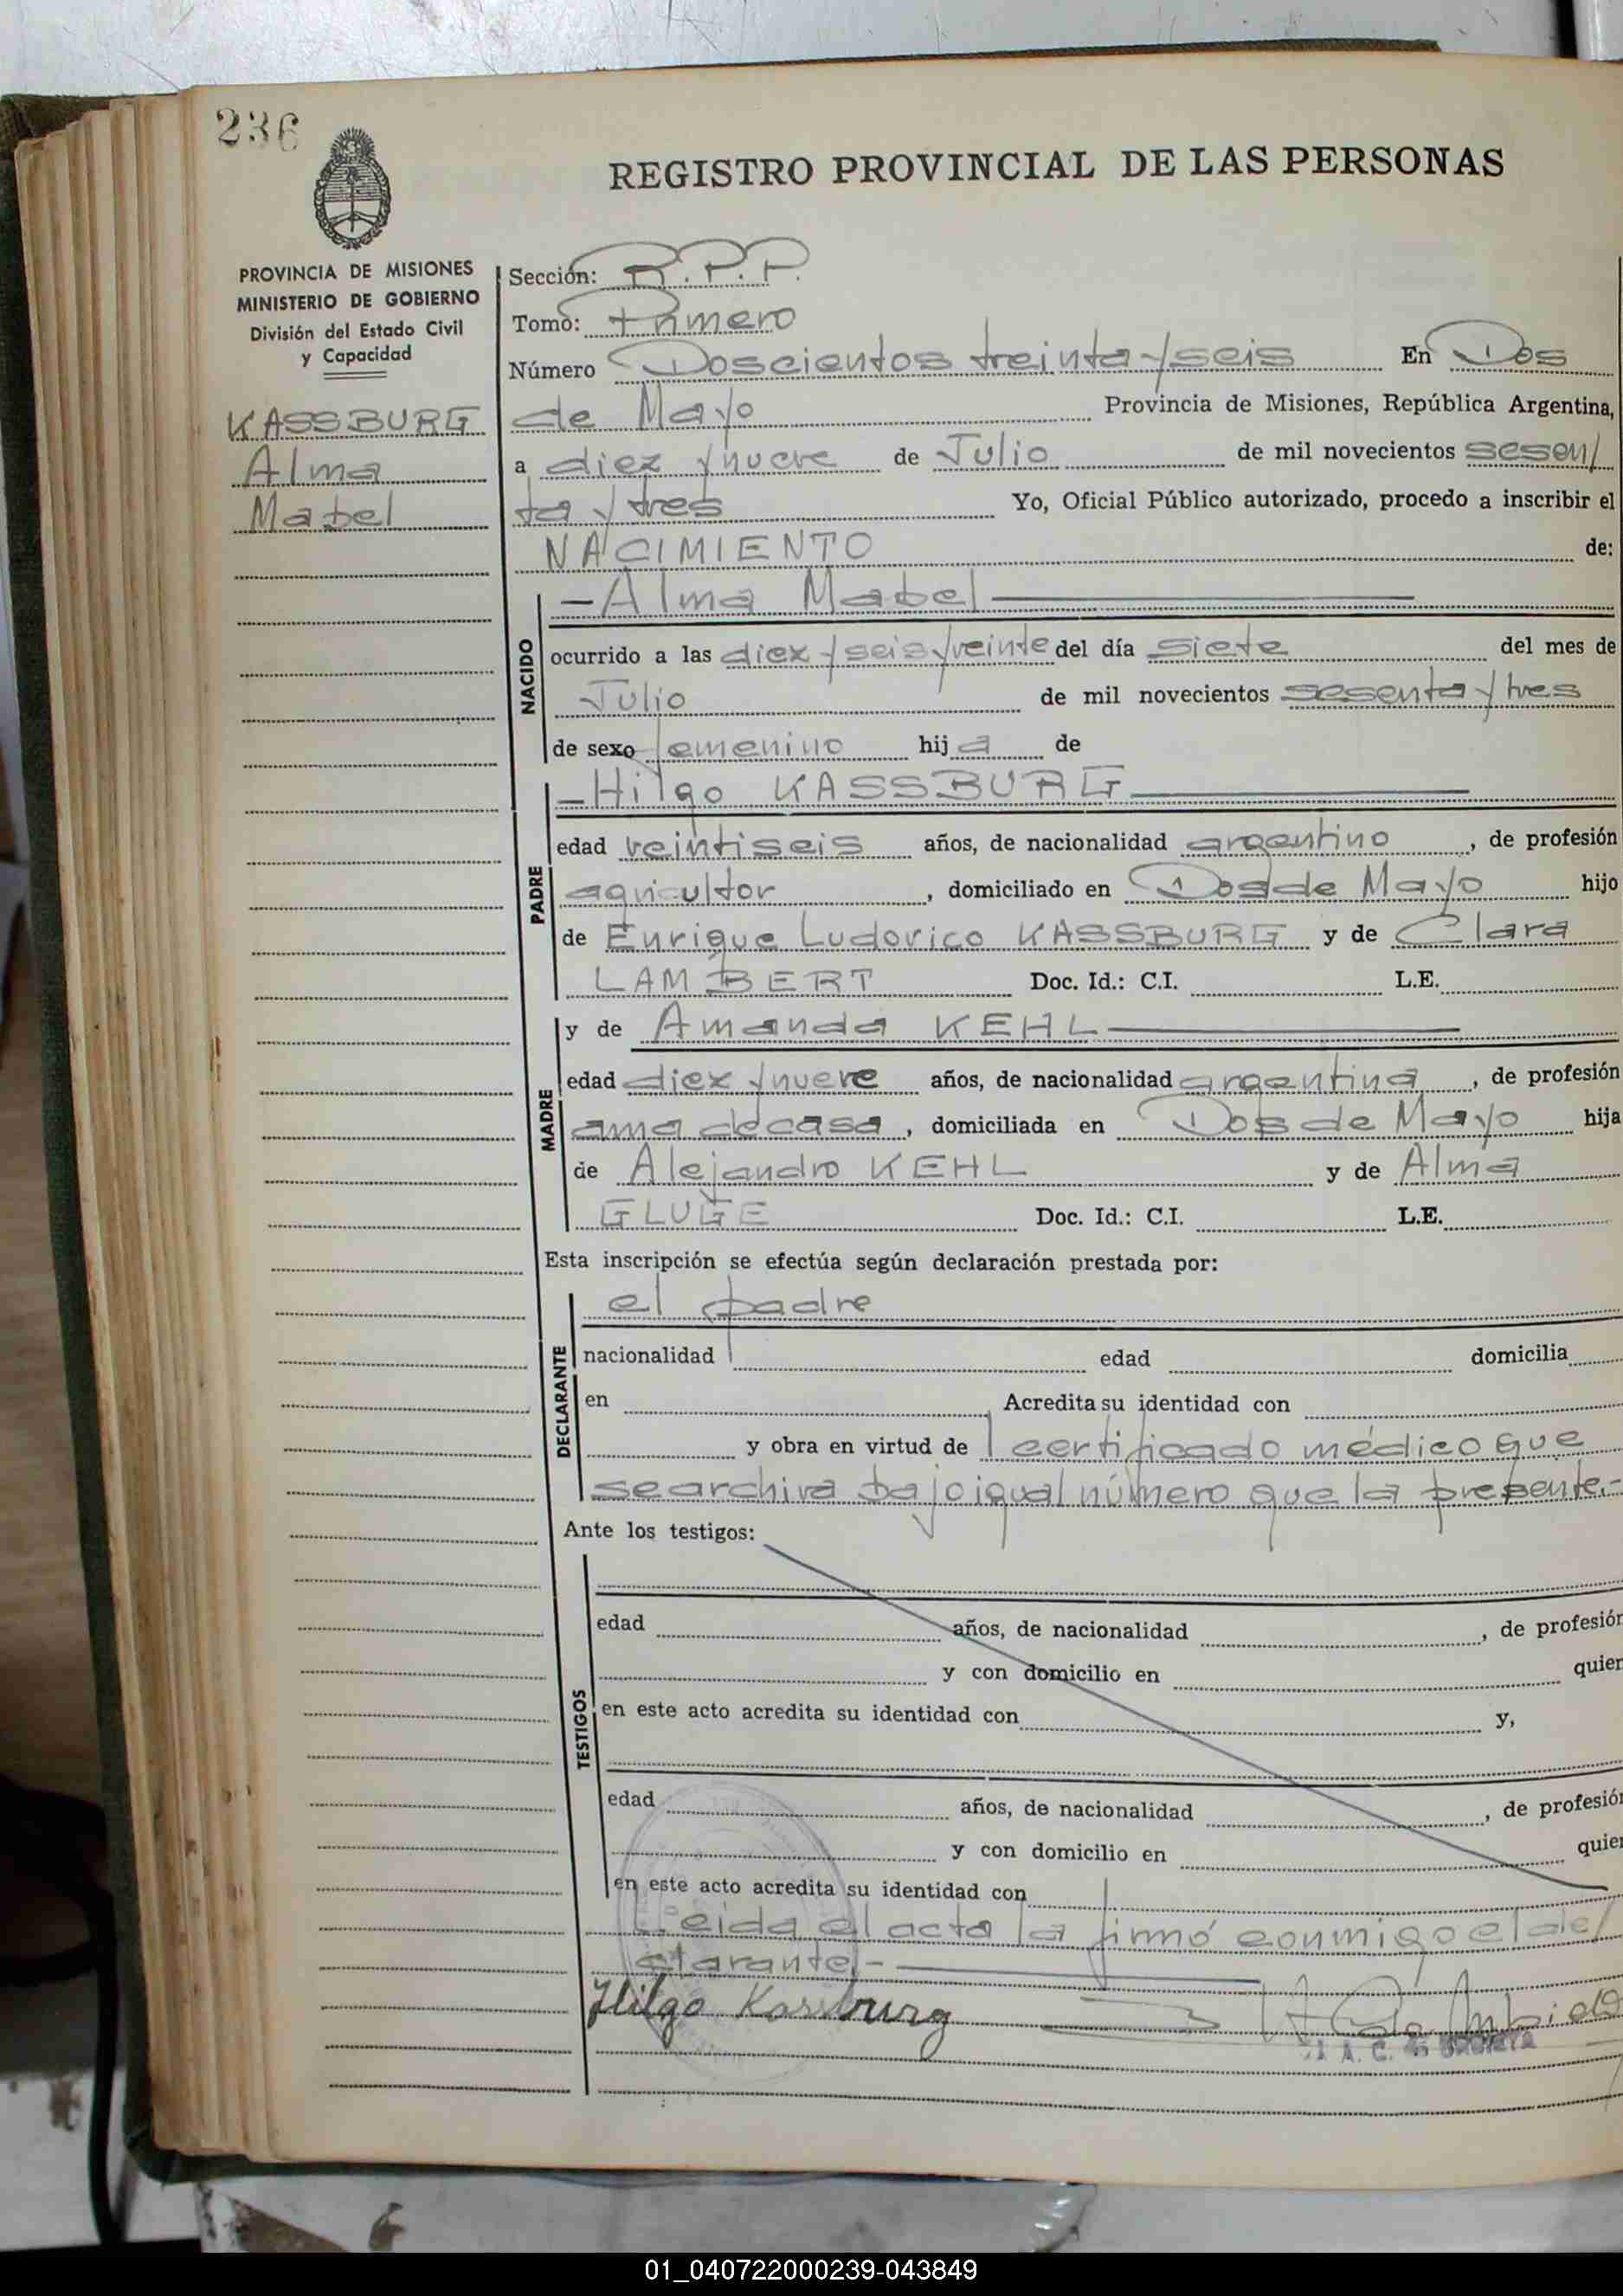 236
REGISTRO PROVINCIAL DE LAS PERSONAS
PROVINCIA DE MISIONES
MINISTERIO DE GOBIERNO
División del Estado Civil
y Capacidad
KASSBURG
Alma
Mabel
Sección: R.P.P.
Tomo: Primero
Número Doscientos treinta y seis En Dos
de Mayo Provincia de Misiones, República Argentina,
a diez y nueve de Julio de mil novecientos sesen/
ta y tres Yo, Oficial Público autorizado, procedo a inscribir el
NACIMIENTO de:
NACIDO
-Alma Mabel
ocurrido a las diez y seis y veinte del día siete del mes de
Julio de mil novecientos sesenta y tres
de sexo femenino hija de
PADRE
-Hilgo KASSBURG
edad veintiseis años, de nacionalidad argentino, de profesión
agricultor, domiciliado en Dos de Mayo hijo
de Enrique Ludovico KASSBURG y de Clara
LAMBERT Doc. Id.: C.I. L.E.
MADRE
y de Amanda KEHL
edad diez y nueve años, de nacionalidad argentina, de profesión
ama de casa, domiciliada en Dos de Mayo hija
de Alejandro KEHL y de Alma
GLUGE Doc. Id.: C.I. L.E.
Esta inscripción se efectúa según declaración prestada por:
DECLARANTE
el padre
nacionalidad edad domicilia
en Acredita su identidad con
y obra en virtud de certificado médico que
se archiva bajo igual número que la presente.-
Ante los testigos:
TESTIGOS
edad años, de nacionalidad , de profesión
y con domicilio en quien
en este acto acredita su identidad con y,
edad años, de nacionalidad , de profesión
y con domicilio en quien
en este acto acredita su identidad con
Leida el acta la firmó conmigo el de/
clarante.-
Hilgo Kassburg
01_040722000239-043849